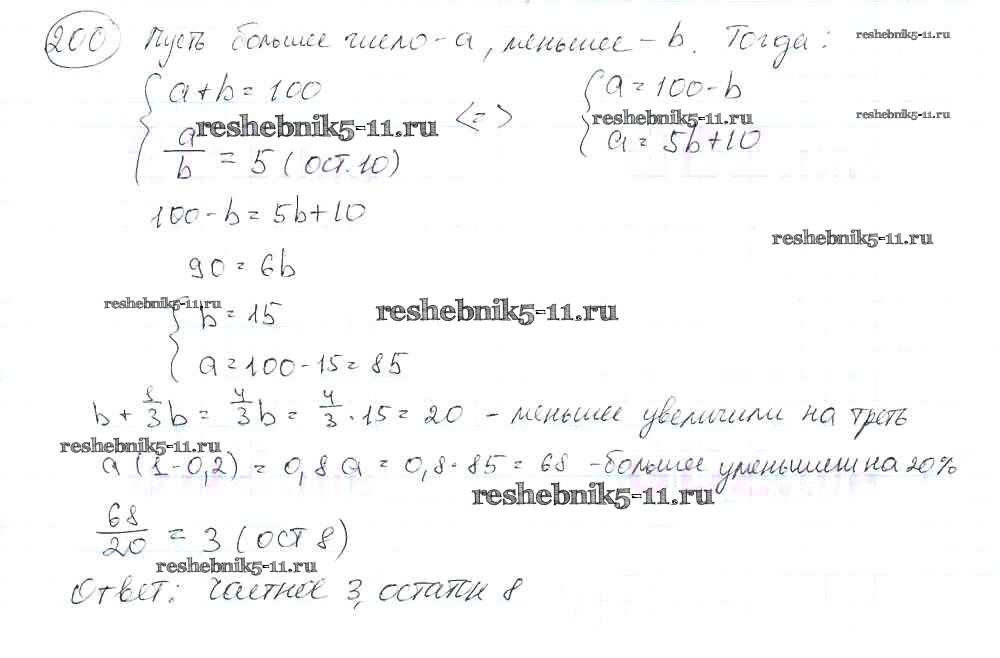 200 Пусть большее число - a, меньшее - b. Тогда: reshebnik5-11.ru
a+b=100 a=100-b
reshebnik5-11.ru <=> reshebnik5-11.ru reshebnik5-11.ru
a/b = 5 (ост.10) a=5b+10
100-b=5b+10
reshebnik5-11.ru
90=6b
reshebnik5-11.ru
b=15 reshebnik5-11.ru
a=100-15=85
b+1/3b=4/3b=4/3·15=20 - меньшее увеличили на треть
reshebnik5-11.ru
a(1-0,2)=0,8a=0,8·85=68 - большее уменьшили на 20%
reshebnik5-11.ru
68/20 = 3 (ост 8)
reshebnik5-11.ru
Ответ: частное 3, остаток 8